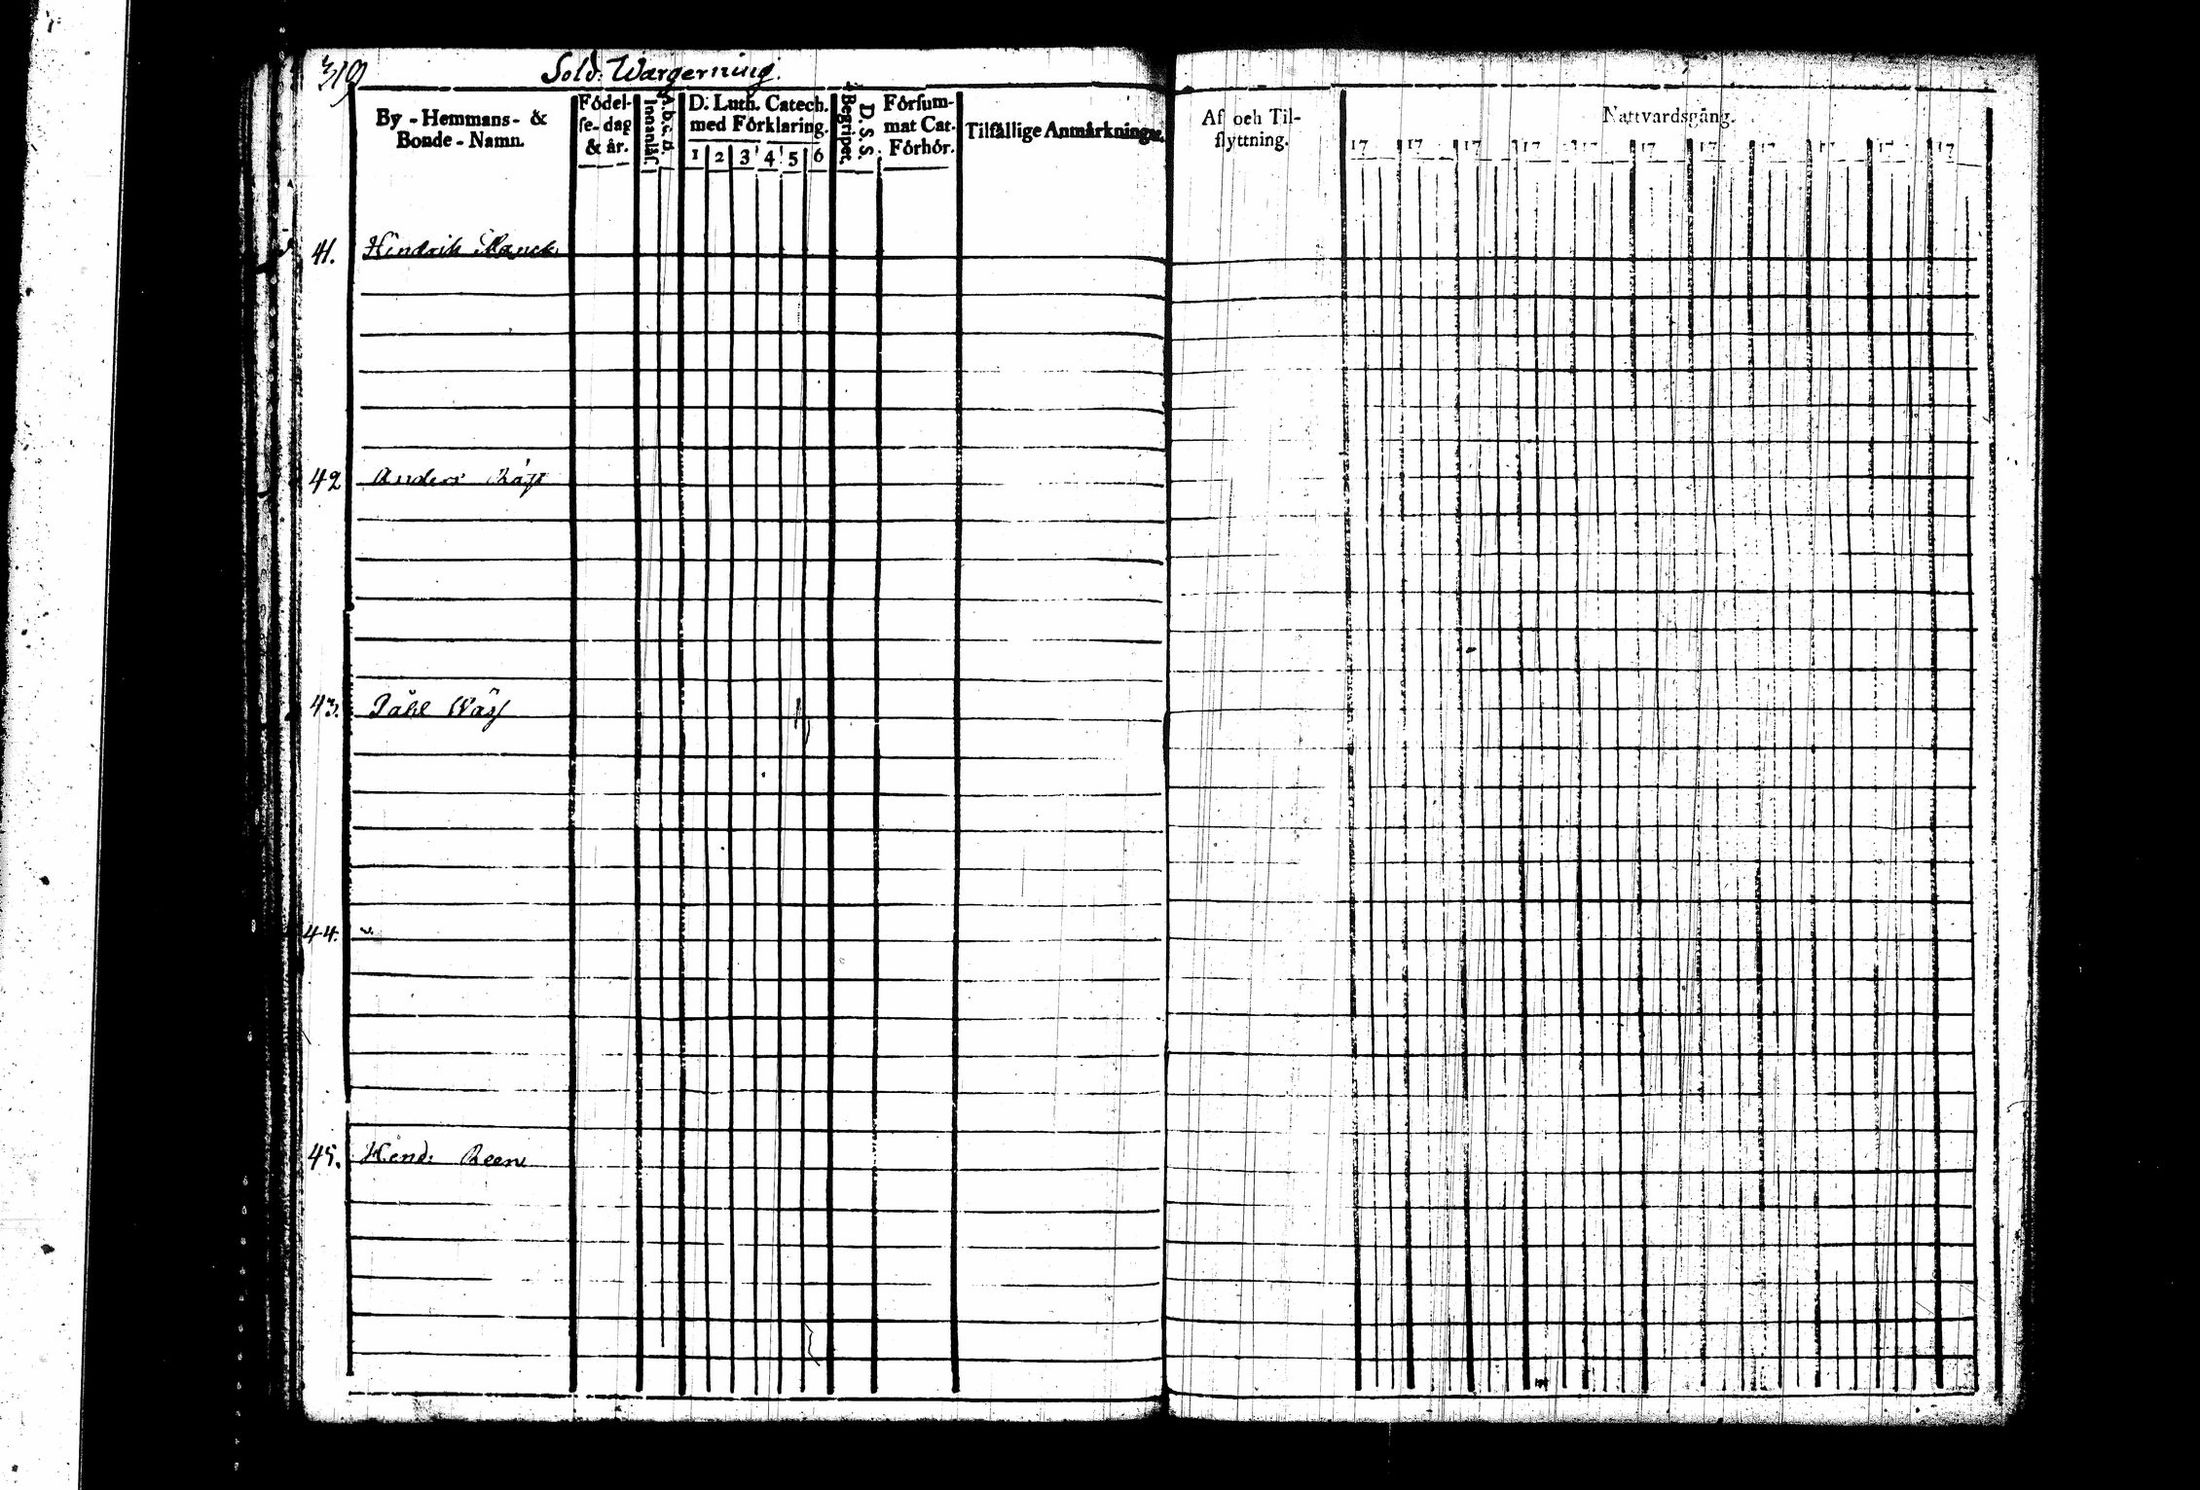 319
Sold: Wargerning.
By - Hemmans- &
Bonde - Namn.
Födel-
se- dag
& år.
Innanläs.
A.b.c.d.
D. Luth. Catech.
med Förklaring.
1 2 3 4 5 6
Begripet.
D. S. S.
Försum-
mat Cat.
Förhör.
Tilfällige Anmärkningar.
Af och Til-
flyttning.
Nattvardsgång.
17 17 17 17 17 17 17 17 17 17 17
41. Hindrik
42 Anders
43. Påhl
44.
45. Hend: Reen